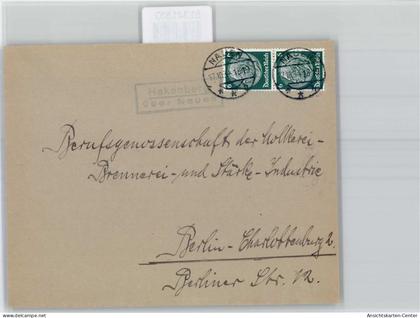 NAUEN
Deutsches Reich
Hakenberg
über Nauen
Berufsgenossenschaft der Molkerei-
Brennerei- und Stärke-Industrie
Berlin-Charlottenburg 2.
Berliner Str. 12.
delcampe.net
Ansichtskarten-Center